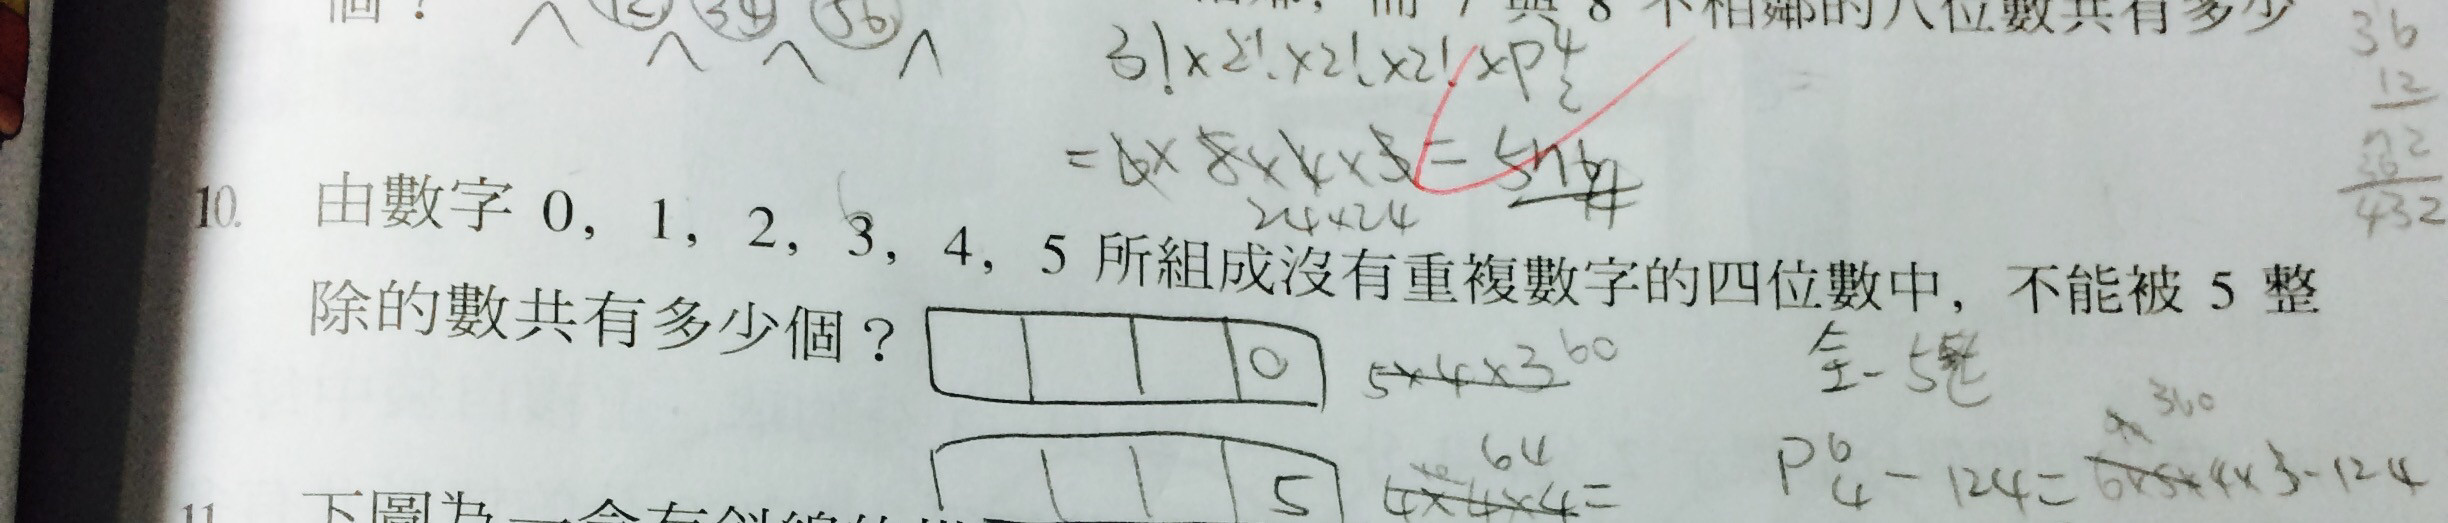 個？ 12 34 56
相鄰，而 7 與 8 不相鄰的八位數共有多少
3!×2!×2!×2!×P
=6×8×4×3=576
24×24
36
12
72
36
432
10. 由數字 0，1，2，3，4，5 所組成沒有重複數字的四位數中，不能被 5 整
除的數共有多少個？
0 5×4×3 60
全-5
5 4×4×4= 64
P 6 4 - 124= 6×5×4×3-124
360
11.